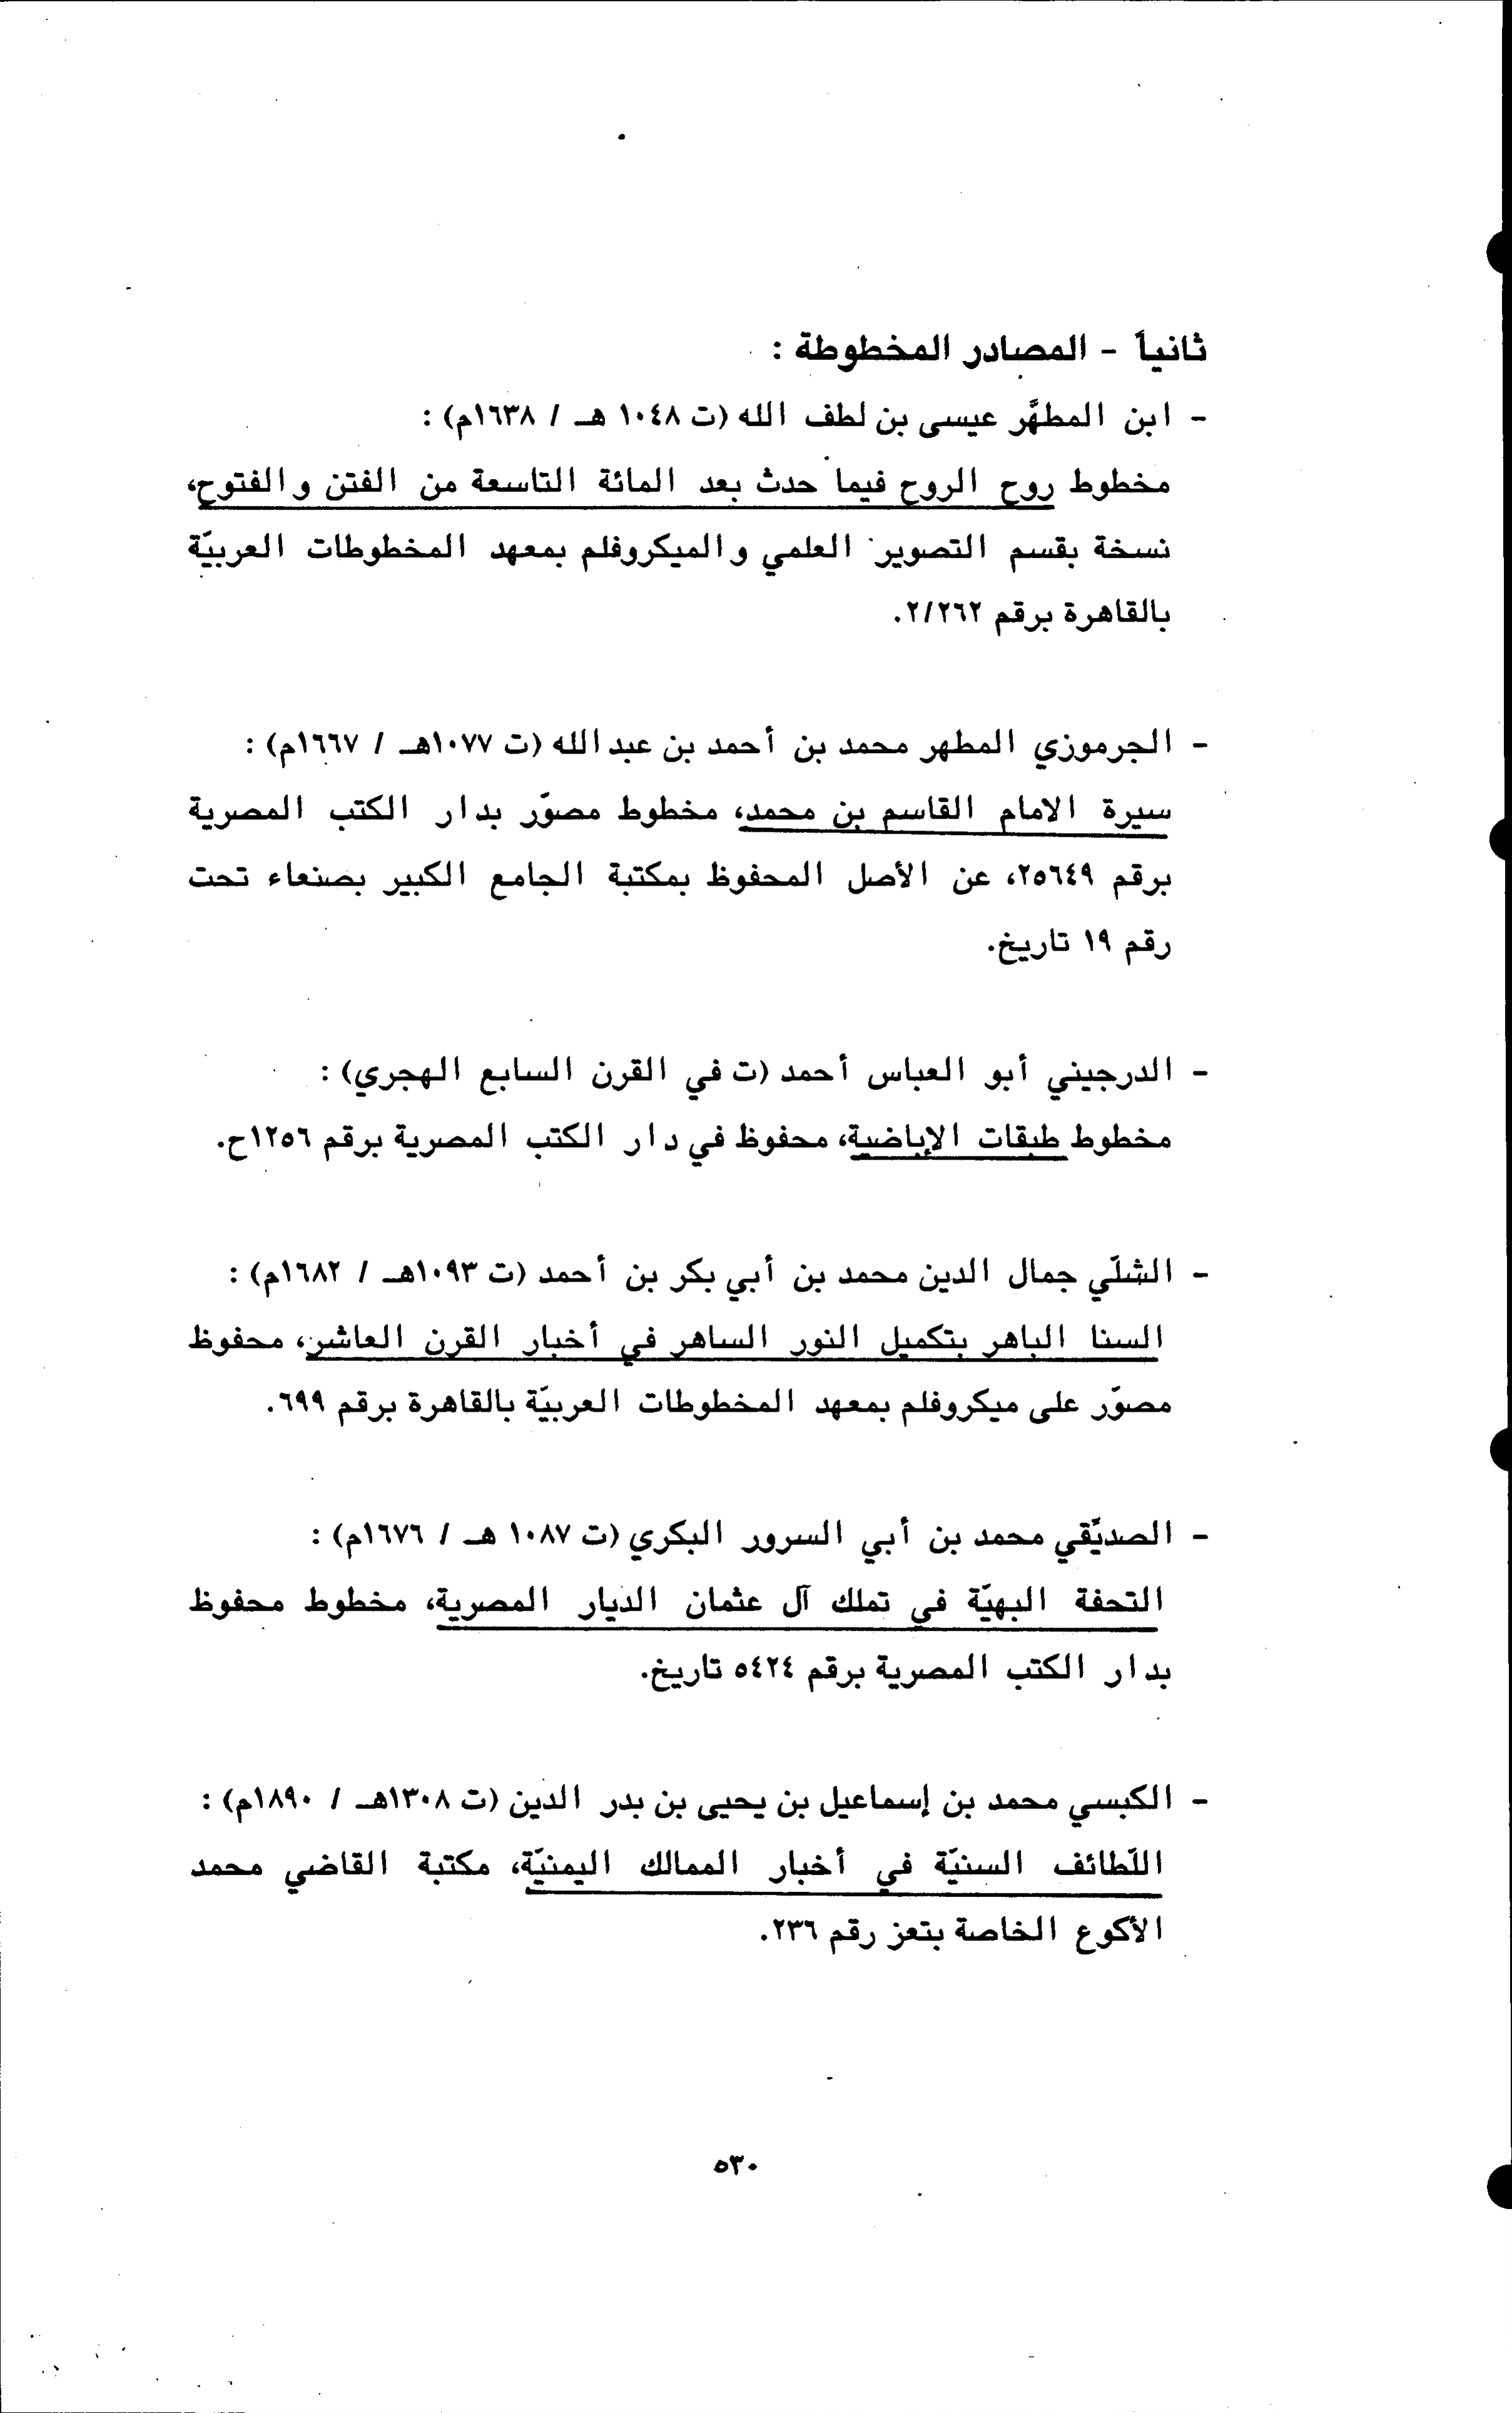 ثانياً - المصادر المخطوطة :
- ابن المطهَّر عيسى بن لطف الله (ت ١٠٤٨ هـ / ١٦٣٨م) :
مخطوط روح الروح فيما حدث بعد المائة التاسعة من الفتن والفتوح،
نسخة بقسم التصوير العلمي والميكروفلم بمعهد المخطوطات العربيّة
بالقاهرة برقم ٢/٢٦٢.
- الجرموزي المطهر محمد بن أحمد بن عبدالله (ت ١٠٧٧هـ / ١٦٦٧م) :
سيرة الامام القاسم بن محمد، مخطوط مصوّر بدار الكتب المصرية
برقم ٢٥٦٤٩، عن الأصل المحفوظ بمكتبة الجامع الكبير بصنعاء تحت
رقم ١٩ تاريخ.
- الدرجيني أبو العباس أحمد (ت في القرن السابع الهجري) :
مخطوط طبقات الإباضية، محفوظ في دار الكتب المصرية برقم ١٢٥٦ح.
- الشلّي جمال الدين محمد بن أبي بكر بن أحمد (ت ١٠٩٣هـ / ١٦٨٢م) :
السنا الباهر بتكميل النور الساهر في أخبار القرن العاشر، محفوظ
مصوّر على ميكروفلم بمعهد المخطوطات العربيّة بالقاهرة برقم ٦٩٩.
- الصديّقي محمد بن أبي السرور البكري (ت ١٠٨٧ هـ / ١٦٧٦م) :
التحفة البهيّة في تملك آل عثمان الديار المصرية، مخطوط محفوظ
بدار الكتب المصرية برقم ٥٤٢٤ تاريخ.
- الكبسي محمد بن إسماعيل بن يحيى بن بدر الدين (ت ١٣٠٨هـ / ١٨٩٠م) :
اللّطائف السنيّة في أخبار الممالك اليمنيّة، مكتبة القاضي محمد
الأكوع الخاصة بتعز رقم ٢٣٦.
٥٣٠